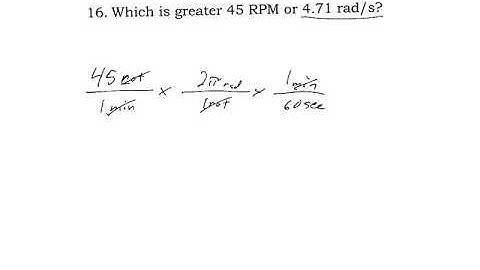 16. Which is greater 45 RPM or 4.71 rad/s?
45 rot / 1 min × 2π rad / 1 rot × 1 min / 60 sec